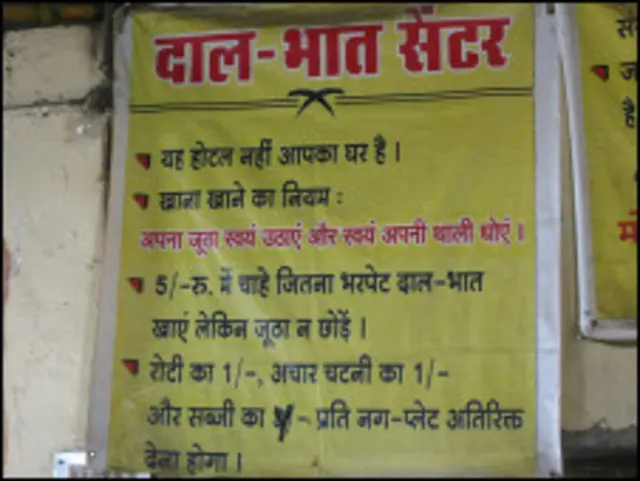 दाल-भात सेंटर
यह होटल नहीं आपका घर है।
खाना खाने का नियम :
अपना जूता स्वयं उठाएं और स्वयं अपनी थाली धोएं।
5/-रु. में चाहे जितना भरपेट दाल-भात
खाएं लेकिन जूठा न छोड़ें।
रोटी का 1/-, अचार चटनी का 1/-
और सब्जी का /- प्रति नग-प्लेट अतिरिक्त
देना होगा।